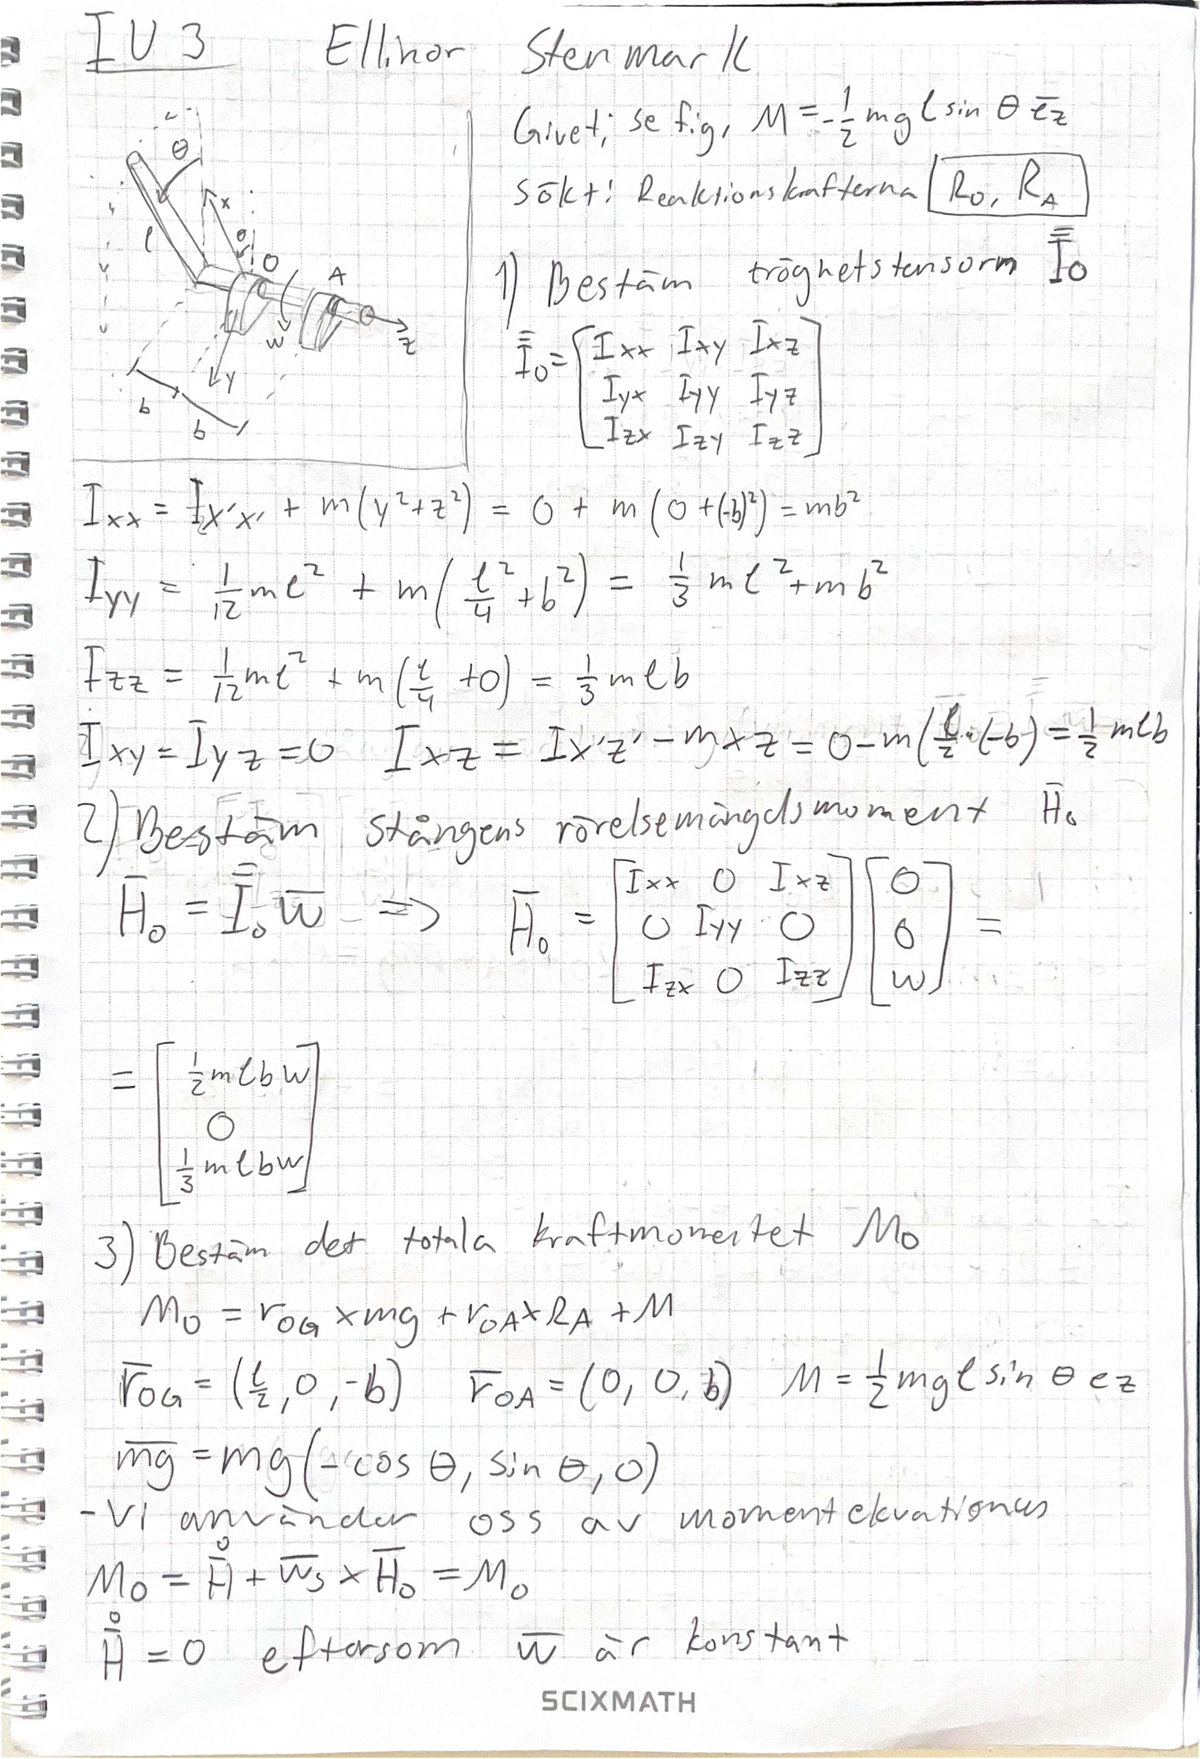 IU3 Ellinor Stenmark
Givet; se fig, M = -1/2 mg l sin θ e̅z
Sökt: Reaktionskrafterna R_O, R_A
θ
x
l
θ
O
A
w
z
y
b
b
1) Bestäm tröghetstensorn I̿_O
I̿_O = [Ixx Ixy Ixz
Iyx Iyy Iyz
Izx Izy Izz]
Ixx = Ix'x' + m(y²+z²) = 0 + m(0+(-b)²) = mb²
Iyy = 1/12 ml² + m(l²/4 + b²) = 1/3 ml² + mb²
Izz = 1/12 ml² + m(l/4 + 0) = 1/3 mlb
Ixy = Iyz = 0 Ixz = Ix'z' - mxz = 0 - m(l/2 · (-b)) = 1/2 mlb
2) Bestäm stångens rörelsemängdsmoment H̅_O
H̅_O = I̿_O w̅ => H̅_O = [Ixx 0 Ixz
0 Iyy 0
Izx 0 Izz] [0
0
w] =
= [1/2 mlbw
0
1/3 mlbw]
3) Bestäm det totala kraftmomentet M_O
M_O = r_OG × mg + r_OA × R_A + M
r̅_OG = (l/2, 0, -b) r̅_OA = (0, 0, b) M = 1/2 mg l sin θ ez
m̅g̅ = mg(-cos θ, sin θ, 0)
- Vi använder oss av momentekvationen
M_O = H̊ + w̅s × H̅_O = M_O
H̊ = 0 eftersom w̅ är konstant
SCIXMATH